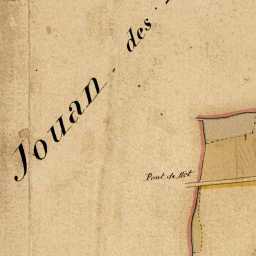 Jouan des
Pont du Mét